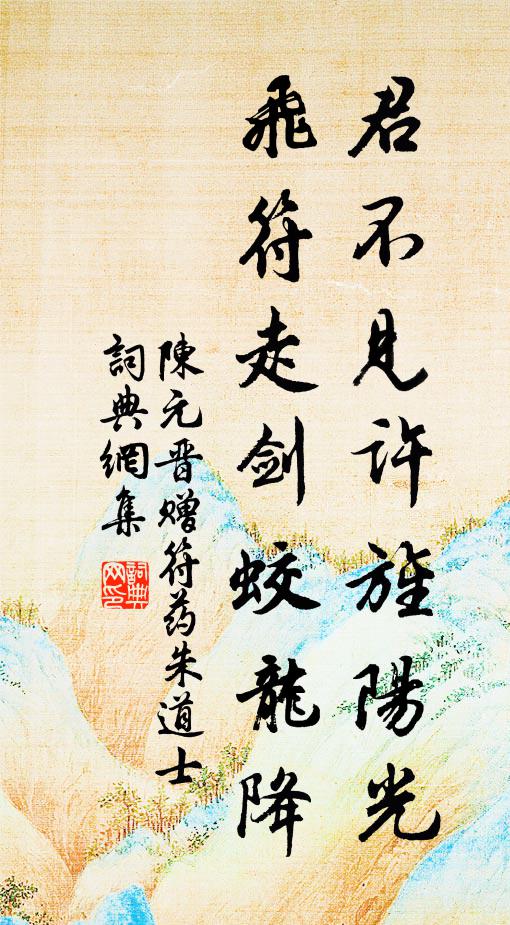 君不見許旌陽光
飛符走剑蛟龍降
陳元晋赠符药朱道士
詞典網集
詞典
网印